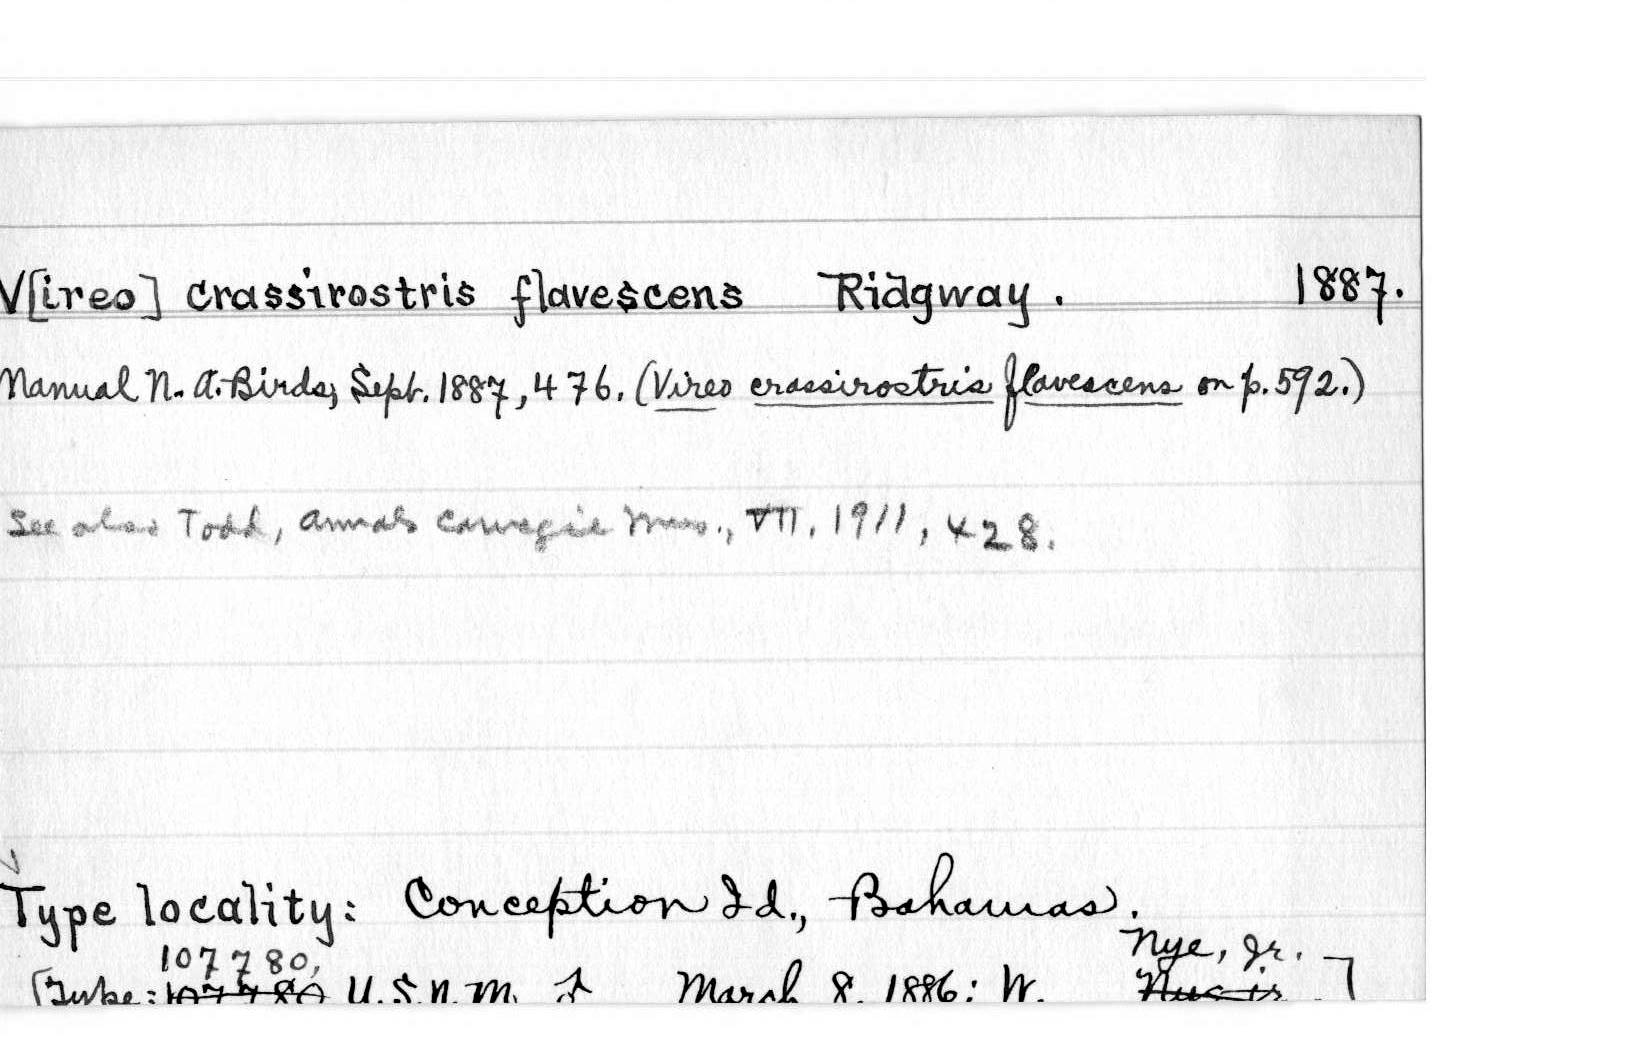 V[ireo] crassirostris flavescens Ridgway. 1887.
Manual N. A. Birds, Sept. 1887, 476. (Vireo crassirostris flavescens on p. 592.)
See also Todd, Annals Carnegie Mus., VII, 1911, 428.
Type locality: Conception Id., Bahamas.
107780, Nye, Jr.
[Type: 107780 U.S.N.M. March 8, 1886: W. ]